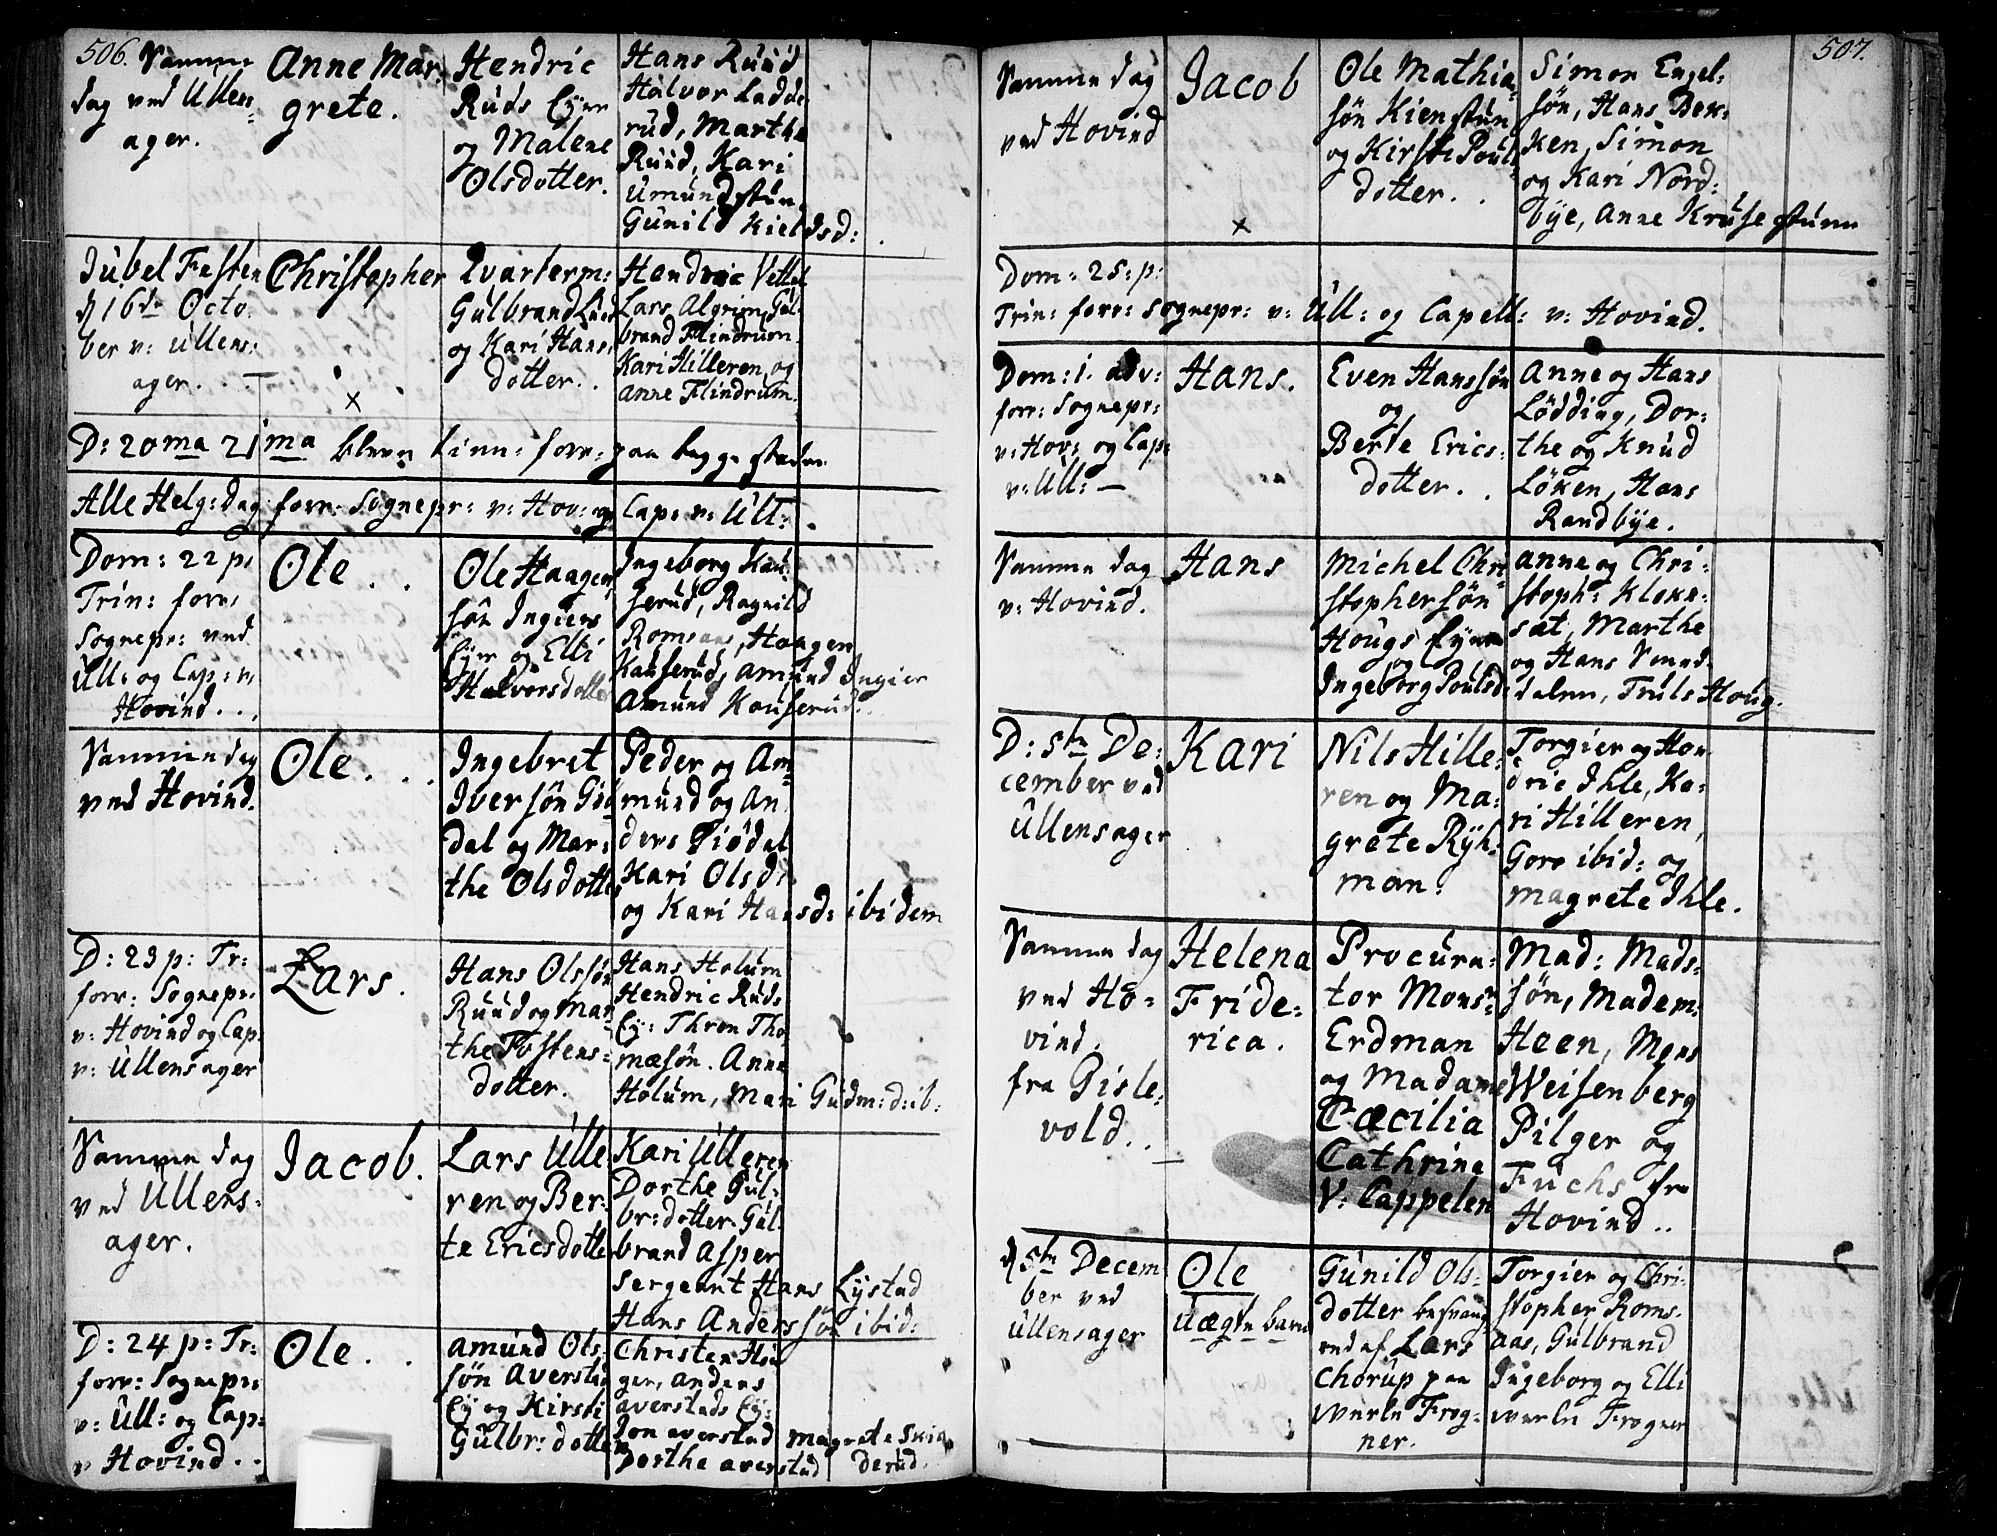 506.
Samme
dag ved Ullens:
ager.
Anne Mar:
grete.
Hendric
Ruds Eyer
og Malene
Olsdotter.
Hans Ruud
Halvor Ladde
rud, Marthe
Ruud, Kari
Umundstun,
Gunild Kieldsd:
Jubel Festen
d 16de Octo
ber v: Ullens:
ager.
Christopher
Qvarterm:
Gulbrand Lund
og Kari Hans,
dotter.
Hendric Vettal
Lars Algrim, Gul
brand Flindrum
Kari Hilleren, og
Anne Flindrum.
D: 20ma 21ma bleven tien: forr: paa begge steder
Alle Helg: dag forr: Sognepr: v: Hov: og Cap: v: Ull:
Dom: 22 p:
Trin: forr:
Sognepr: ved
Ull: og Cap: v:
Hovind.
Ole.
Ole Haagen
søn Ingiers
Eyer og Elli
Halvorsdotter
Ingeborg Kau
serud, Ragnild
Romsaas, Haagen
Kauserud, Amund Ingier
Amund Kauserud.
Samme dag
ved Hovind.
Ole.
Ingebret
Iversøn Giø
dal og Mar:
the Olsdotter
Peder og Am
mund og An
ders Giødal
Kari Olsd:
og Kari Hansd: ibidem
D: 23 p: Tr:
forr: Sognepr:
v: Hovind og Cap
v: Ullensager
Lars.
Hans Olsøn
Ruud og Mar
the Tostens:
dotter.
Hans Holum
Hendric Ruds
Ey: Thron Tho
mæsøn. Anne
Holum, Mari Gudm: d: ib:
Samme dag
ved Ullens:
ager.
Jacob.
Lars Ulle
ren og Ber:
te Ericsdotter
Kari Ulleren
Dorthe Gul:
br: dotter. Gul
brand Asper
Sergeant Hans Lystad
Hans Anderssøn ibid:
D: 24 p: Tr:
forr: Sognepr:
v: Ull: og Cap:
v Hovind.
Ole.
Amund Ols
søn Aversta
Ey og Kirsti
Gulbr: dotter
Christen Hau
ger, Anders
Averstads Ey:
Jon Averstad Magrete Skia
Dorthe Averstad derud.
507.
Samme dag
ved Hovind
Jacob
Ole Mathia
søn Kienstun
og Kirsti Pouls
dotter.
Simon Engel:
søn, Hans Bek:
ken, Simon
og Kari Nord:
bye, Anne Krusestuen
Dom: 25: p:
Trin: forr: Sognepr: v: Ull: og Capell: v: Hovind.
Dom: 1. Adv:
forr: Sognepr:
v: Hov: og Cap:
v: Ull:
Hans.
Even Hanssøn
og
Berte Erics:
dotter.
Anne og Hans
Lødding, Dor:
the og Knud
Løken, Hans
Randbye.
Samme dag
v: Hovind.
Hans
Michel Chri
stophersøn
Hougs Eyer
og
Ingeborg Poulsd:
Anne og Chri:
stoph: Klokk:
sat, Marthe
og Hans
dalen, Truls Houg.
D: 5te De:
cember ved
Ullensager
Kari
Nils Hille:
ren og Ma:
grete Ryh:
man.
Torgier og Hen
dric Ihle, Ka:
ri Hilleren,
Goro ibid: og
Magrete Ihle.
Samme dag
ved Ho:
vind.
fra Gisle:
vold.
Helena
Fride:
rica.
Procura:
tor Monsr
Erdman
og Madame
Cæcilia
Cathrine
V: Cappelen
Mad: Mads:
søn, Madem:
Heen, Mons
Weisenberg
Pilger og
Fuchs fra
Hovind.
d 5te Decem
ber ved
Ullensager
Ole
Uægte barn
Gunild Ols:
dotter besvang
red af Lars
Chorup paa
Werln Frog:
ner.
Torgier og Chri:
stopher Roms
aas, Gulbrand
Ingeborg og Elli
Werln Frogner